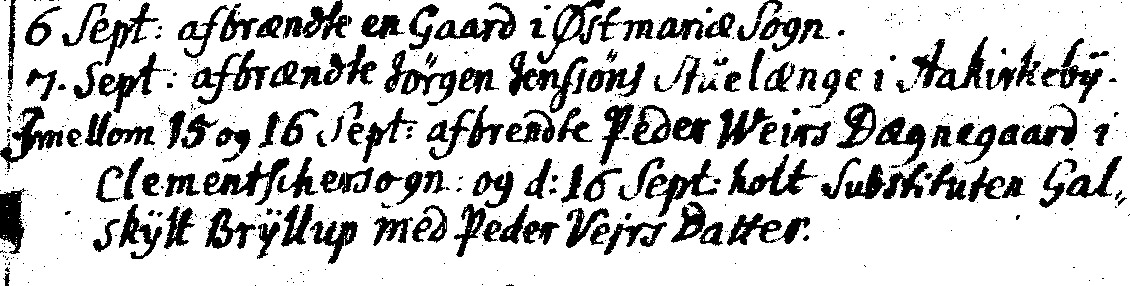 6 Sept: afbrændte en Gaard i Østmariæ Sogn.
7. Sept: afbrændte Jörgen Jenssöns Stüelænge i Aakirkebÿ.
Jmellom 15 og 16 Sept: afbrendte Peder Weirs Dægnegaard i
Clementschersogn: og d: 16 Sept: holt Substituten Gal-
skÿtt Brÿllup med Peder Vejrs Datter.